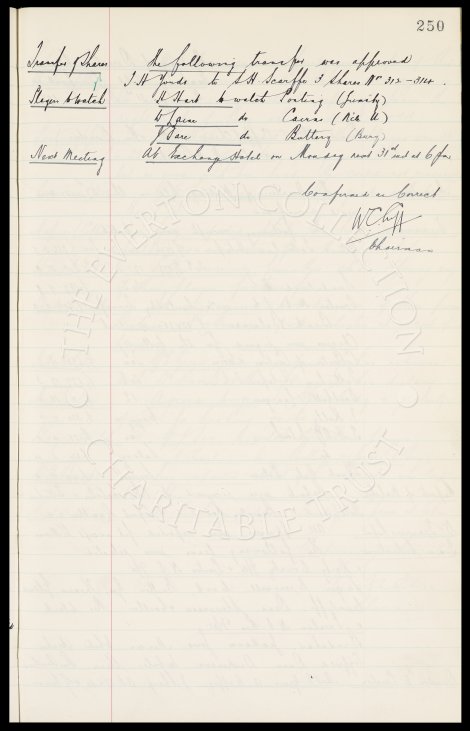 250
Transfer of Shares The following transfer was approved
J H to S.H. Scarffe 3 Shares No 312-314.
Players to watch H Hart to watch Posting (Grimsby)
W do Cairns
do Buttery (Bury)
Next Meeting At Exchange Hotel on Monday next 31st inst at 6 pm
Confirmed as Correct
W C Cuff
Chairman
THE EVERTON COLLECTION
CHARITABLE TRUST